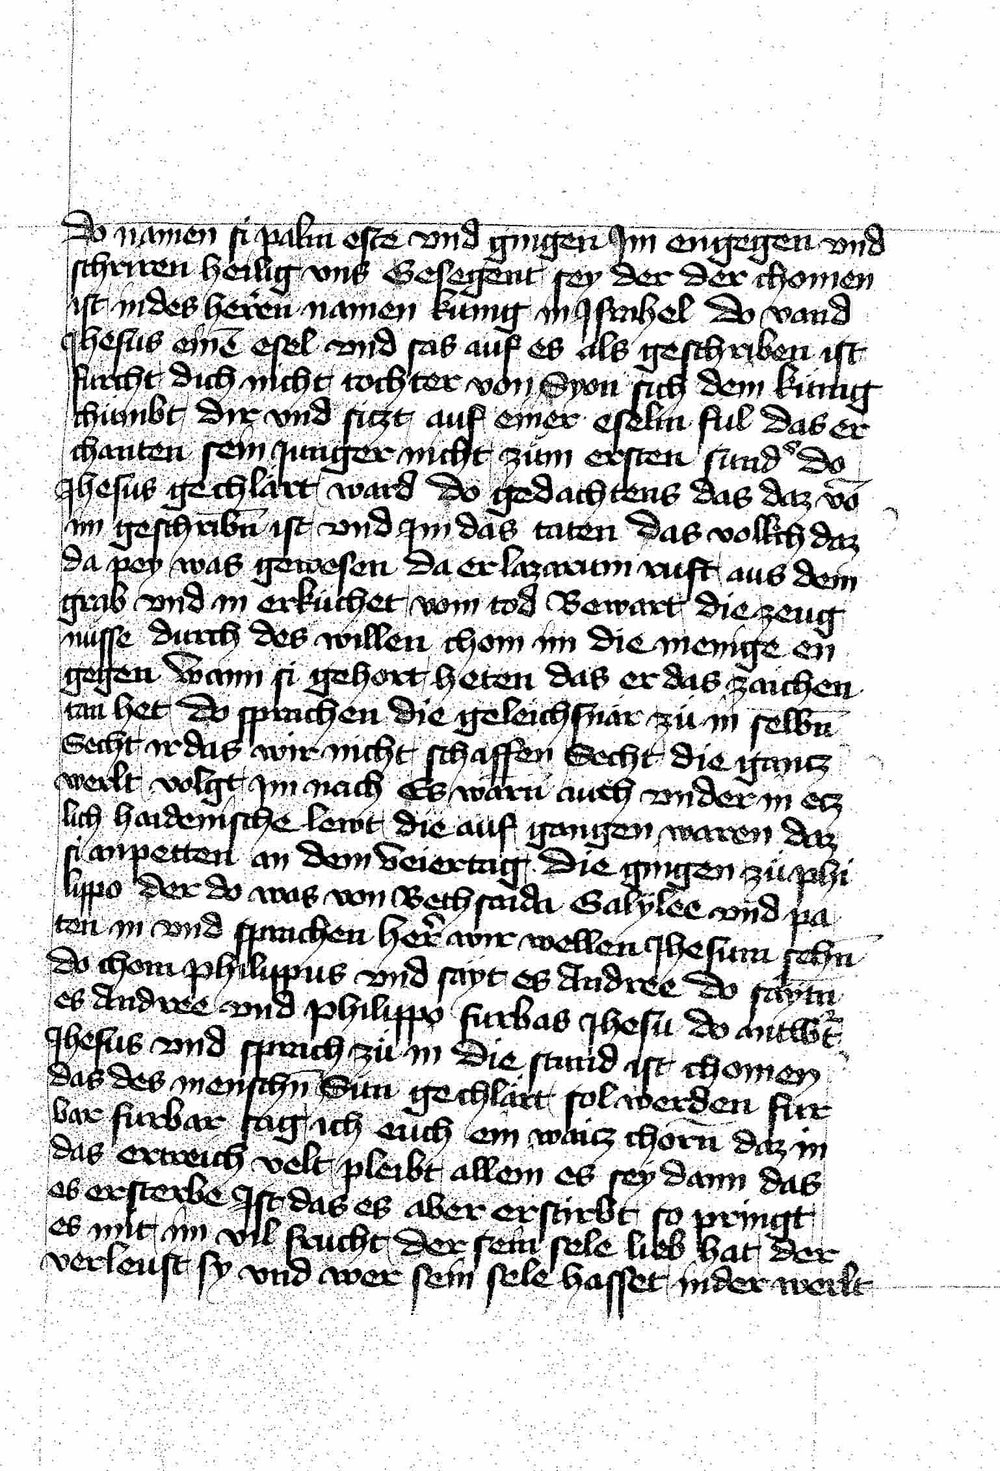 Do namen si palm este vnd gingen Im engegen vnd
schriren heilig vns Gesegent sey der der chomen
ist in des herren namen kunig in Israhel Do vand
Jhesus eine͂ esel vnd sas auf es als geschriben ist
furcht dich nicht tochter von Syon sich dein kunig
chumbt dir vnd siczt auf einer eselin ful das er
chanten sein Junger nicht zum ersten sund͛ do
Jhesus gechlärt ward Do gedachtens das daz vo͂
im geschribn̄ ist vnd Im das taten Das volkch daz
da pey was gewesen da er lazarum ruft aus dem
grab vnd in erkuchet vom tod Bewart die zeug
nusse durch des willen chom im die menige en
gegen Wann si gehort heten das er das zaichen
tan het Do sprachen die geleichsnär zu in selbn̄
Secht ir das wir nicht schaffen Secht die gancz
werlt volgt Im nach Es warn̄ auch vnder in ecz
lich haidenische lewt die auf gangen waren daz
si anpetten an dem veiertag Die gingen zu phi
lippo der do was von Bethsaida Galylee vnd pa
ten in vnd sprachen her̄ wir wellen Jhesum sehn̄
Do chom philippus vnd sayt es Andree Do saytn̄
es Andree vnd philippo furbas Jhesu do antwᵒt͛
Jhesus vnd sprach zu in Die stund ist chomen
das des menschn̄ Sun gechlärt sol werden fur
bar furbar sag ich euch ein waicz chorn̄ daz in
das ertreich velt pleibt allein es sey dann das
es ersterbe Ist das es aber erstirbt so pringt
es mit im vil frucht der sein sele lieb hat der
verleust sy vnd wer sein sele hasset in der werlt